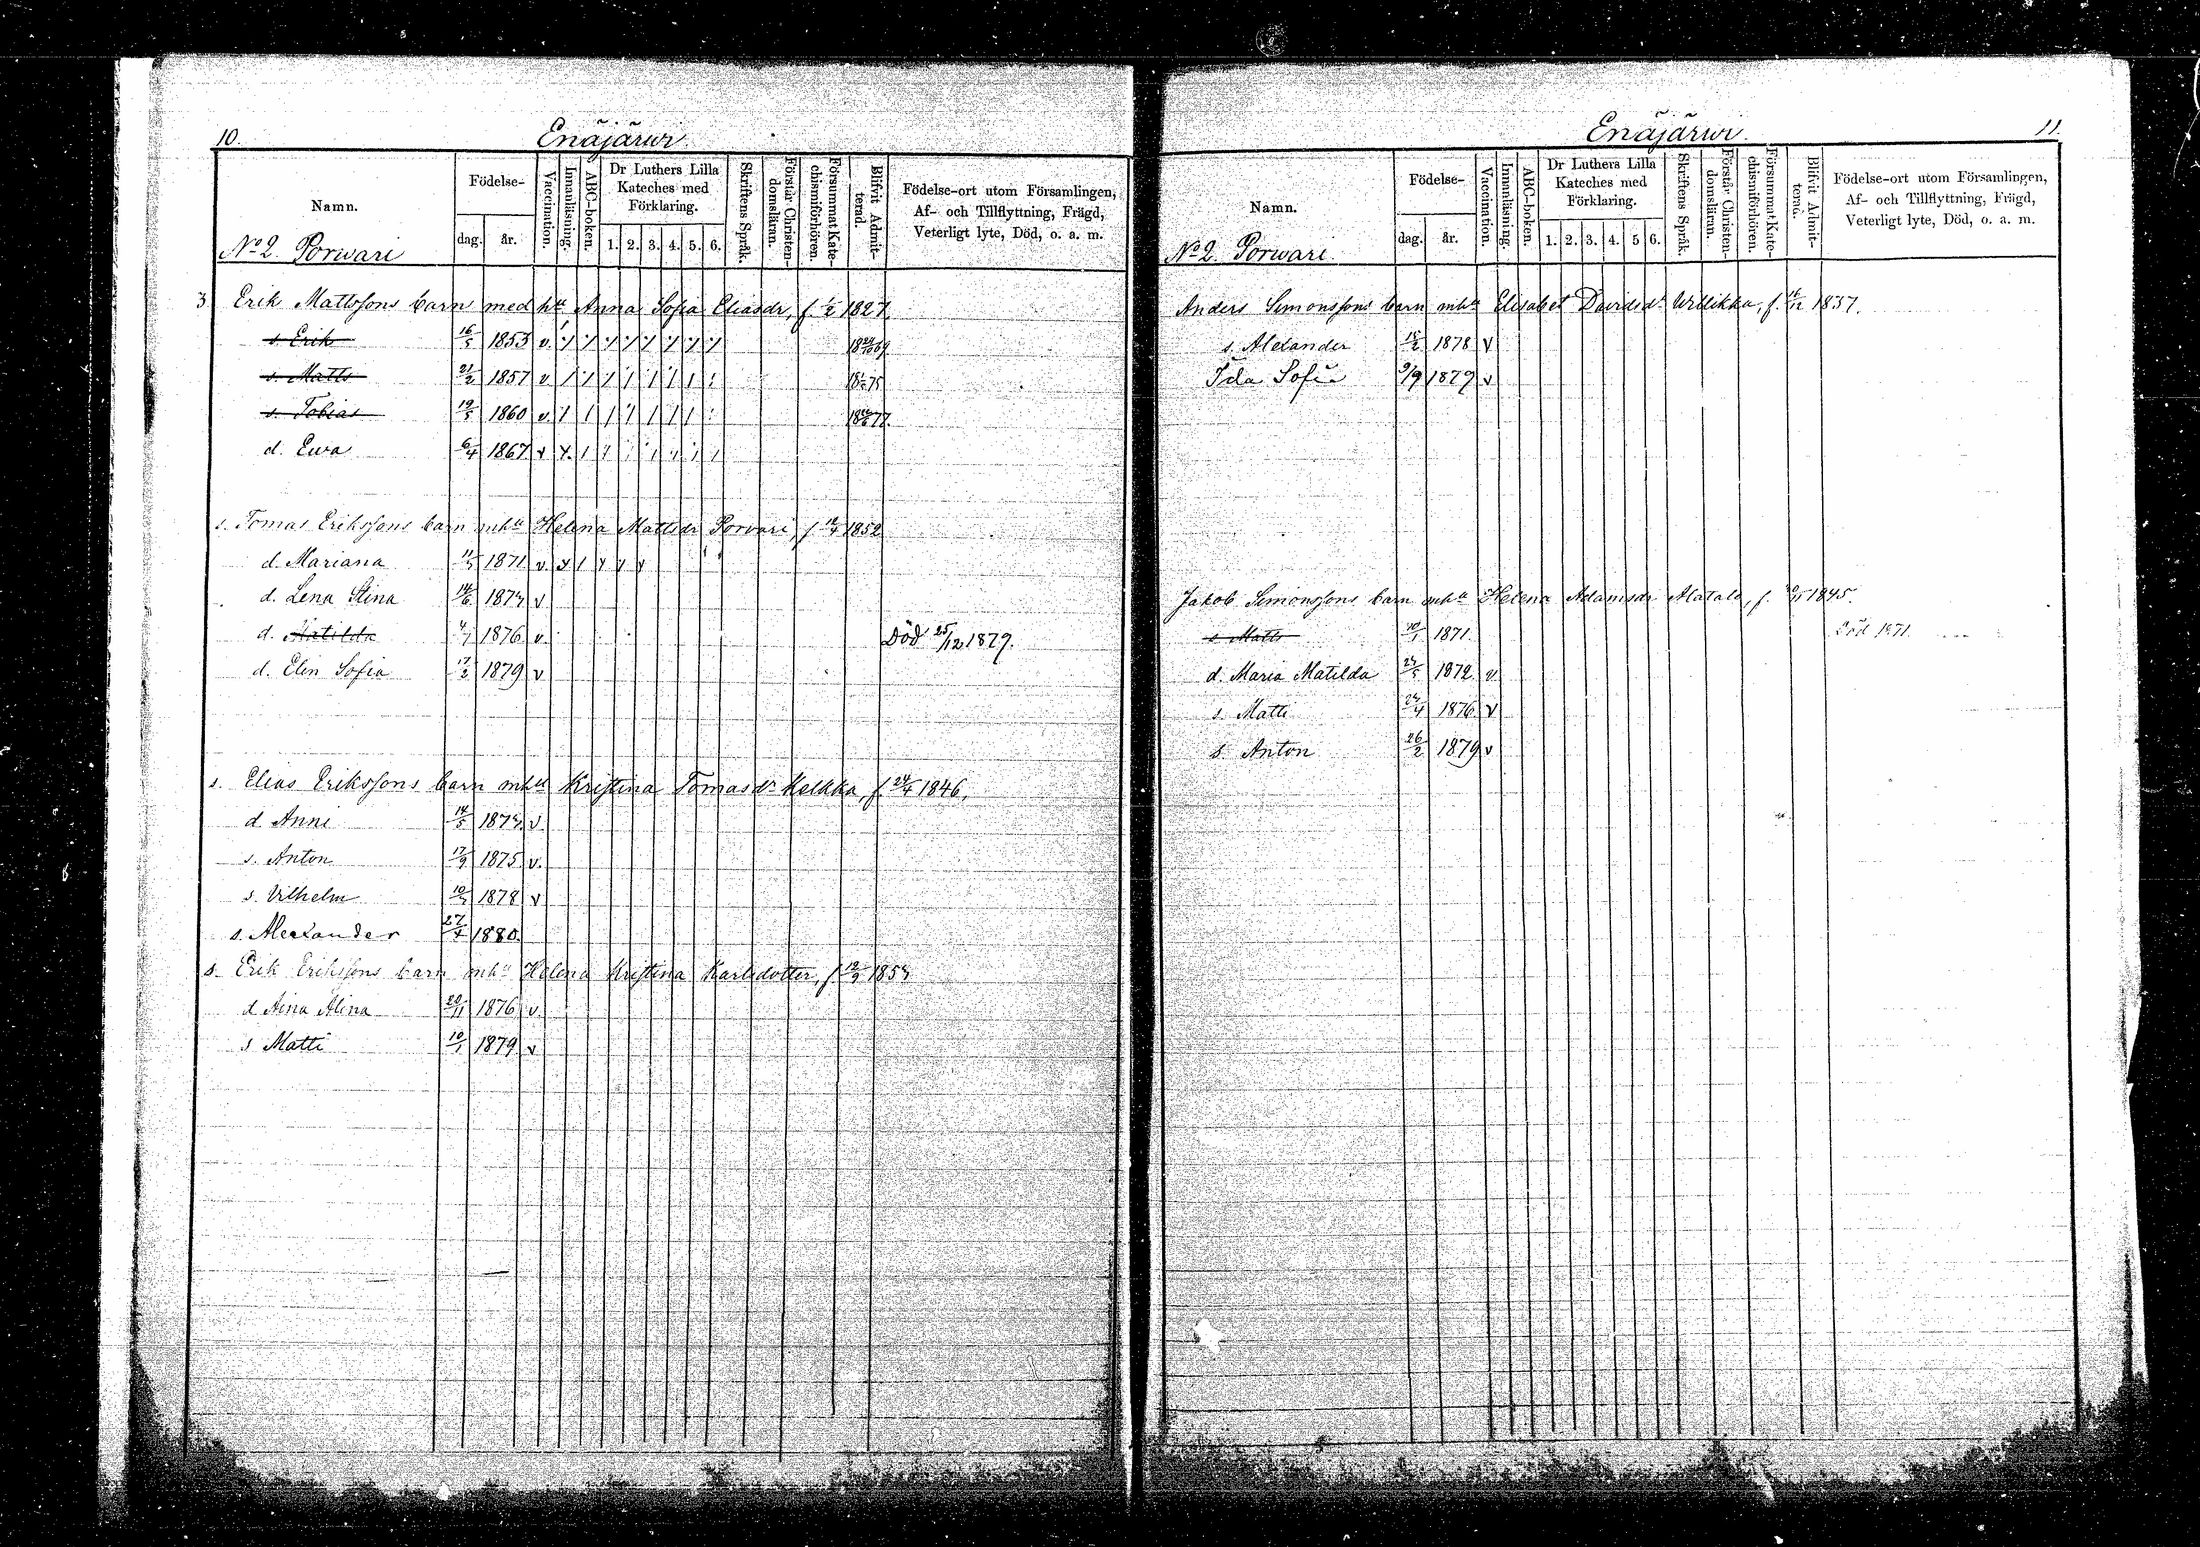 10.
Enäjärwi
Namn.
Födelse-
dag.
år.
Vaccination.
Innanläsning.
ABC-boken.
Dr Luthers Lilla
Kateches med
Förklaring.
1. 2. 3. 4. 5. 6.
Skriftens Språk.
Förstår Christen-
domsläran.
Försummat Kate-
chismiförhören.
Blifvit Admit-
terad.
Födelse-ort utom Församlingen,
Af- och Tillflyttning, Frägd,
Veterligt lyte, Död, o. a. m.
No 2 Porwari
3 Erik Mattssons barn med hu Anna Sofia Eliasdr, f. 1/2 1827.
s. Erik 16/5 1853 v. 69
s. Matts 21/2 1857 v 75
s. Tobias 19/5 1860 v. 77.
d. Ewa 6/4 1867 v
s. Tomas Erikssons barn mhu Helena Mattsdr Porvari, f 1852
d. Mariana 11/5 1871 v.
d. Lena Stina 14/6 1873 v
d. Matilda 4/1 1876 v. Död 25/12 1879.
d. Elin Sofia 17/2 1879 v
s. Elias Erikssons barn mhu Kristina Tomasdr Melkka, f. 24/4 1846,
d Anni 14/5 1873. v
s. Anton 17/9 1875 v.
s. Vilhelm 1878 v
s. Alexander 27/4 1880.
s. Erik Erikssons barn mhu Helena Kristina Karlsdotter, f 1853
d Aina Alina 20/11 1876 v
s Matti 10/1 1879 v
Enäjärwi
11.
Namn.
Födelse-
dag.
år.
Vaccination.
Innanläsning.
ABC-boken.
Dr Luthers Lilla
Kateches med
Förklaring.
1. 2. 3. 4. 5 6.
Skriftens Språk.
Förstår Christen-
domsläran.
Försummat Kate-
chismiförhören.
Blifvit Admit-
terad.
Födelse-ort utom Församlingen,
Af- och Tillflyttning, Frägd,
Veterligt lyte, Död, o. a. m.
No 2 Porwari
Anders Simonssons barn mhu Elisabet Davidsdr Willikka, f. 1857.
s. Alexander 1878 v
Ida Sofia 9/9 1879 v
Jakob Simonssons barn mhu Helena Adamsdr Alatalo, f. 1845.
s Matts 1871. Död 1871
d. Maria Matilda 1872 v.
s. Matti 1876 v
s. Anton 26/2 1879 v